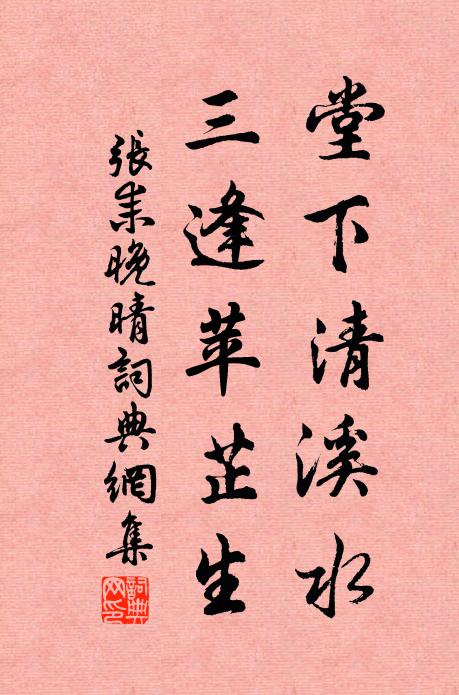 堂下清溪水
三逢苹芷生
張耒晚晴詞典網集
詞典网印